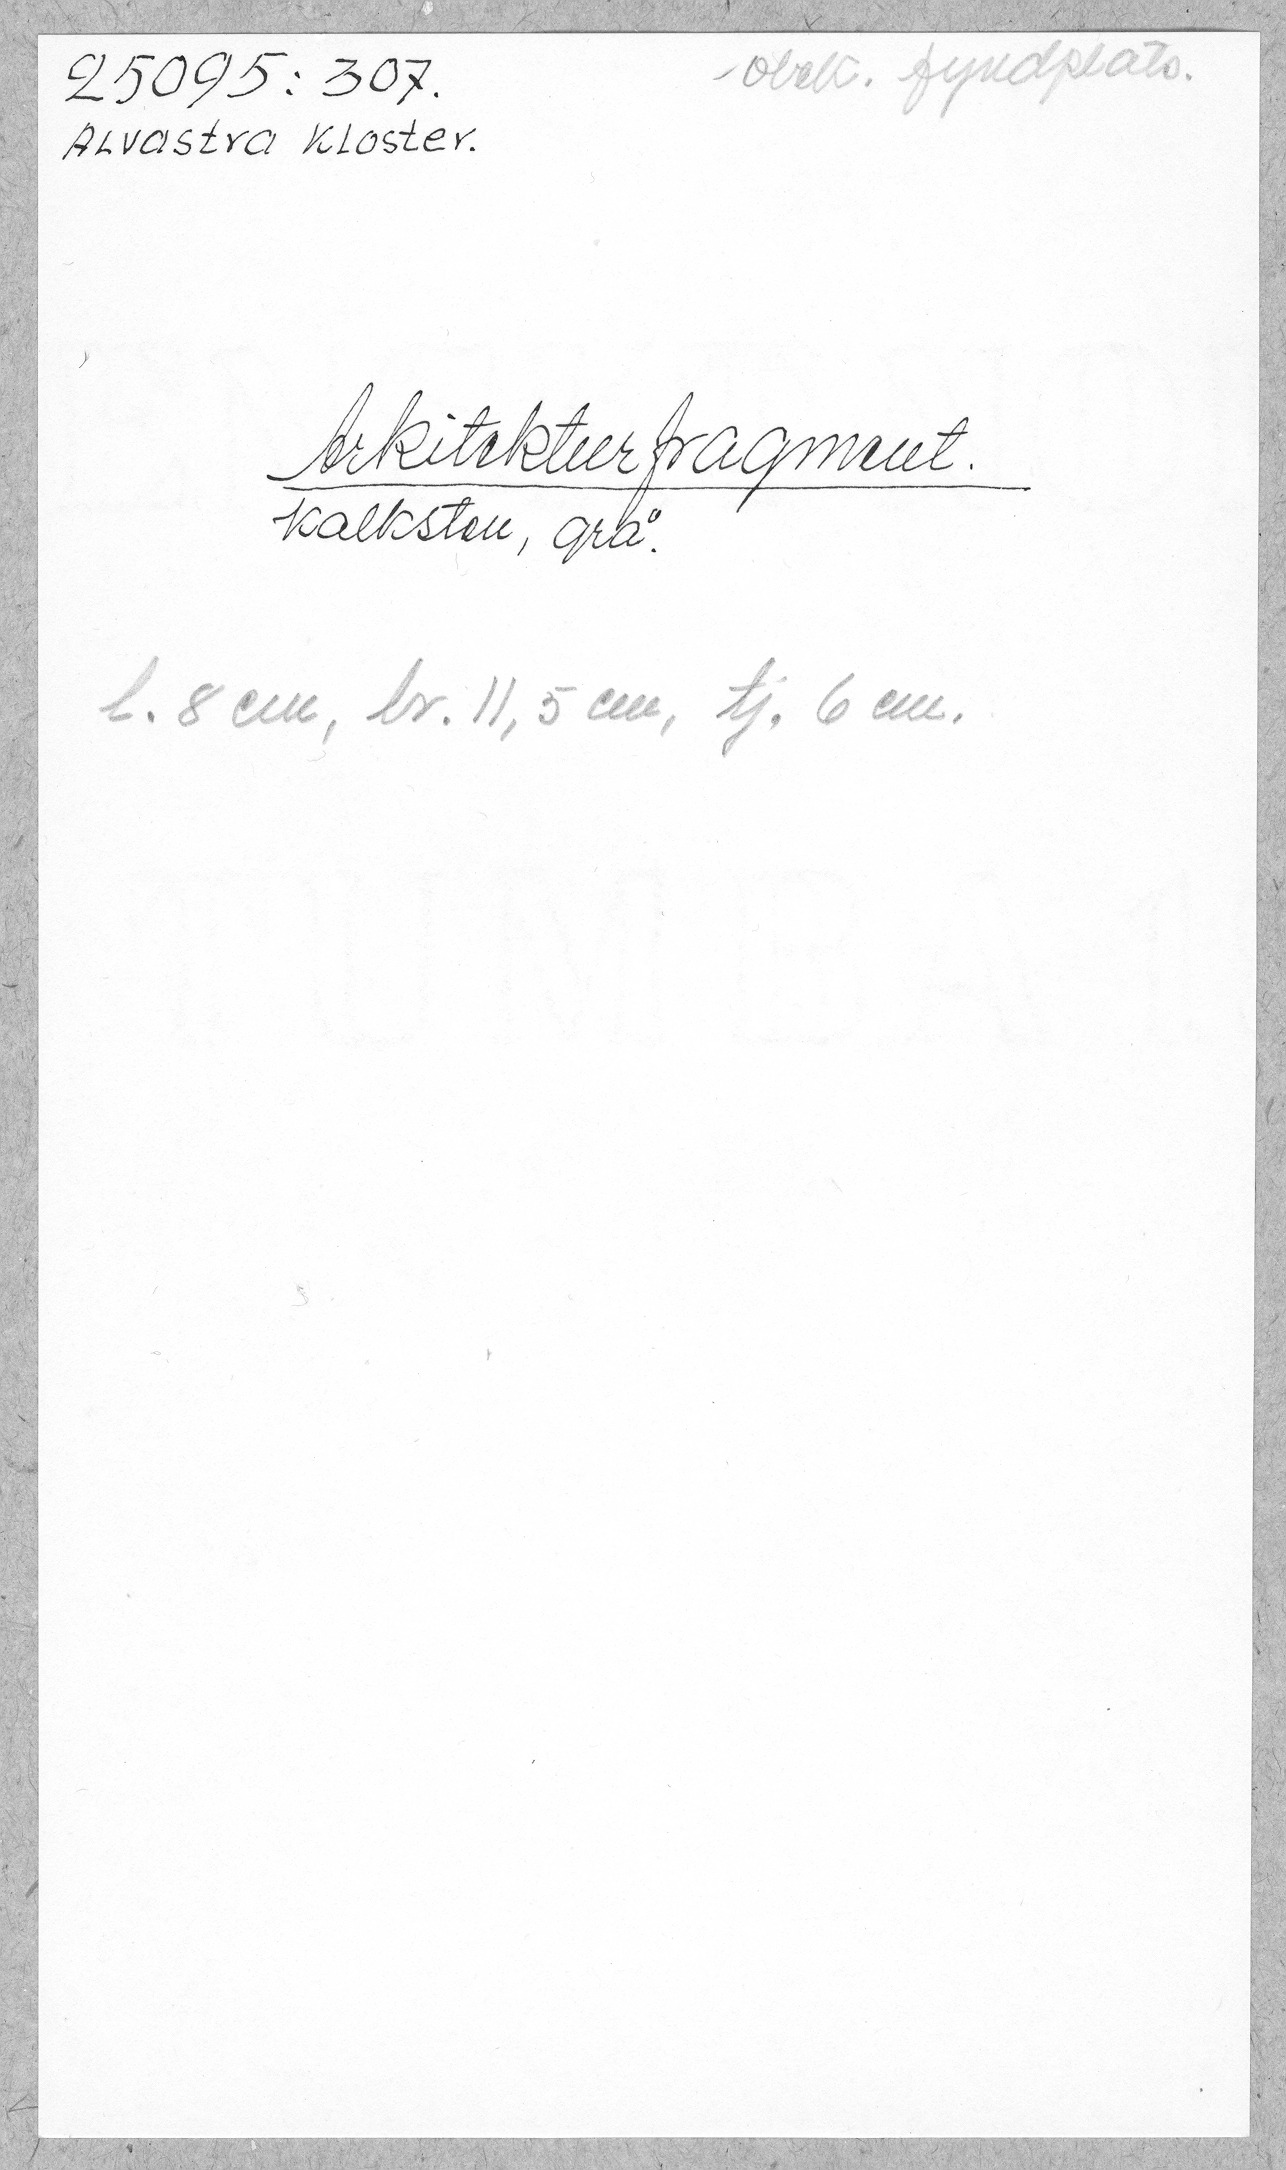 25095: 307.
obek. fyndplats.
Alvastra Kloster.
Arkitekturfragment.
Kalksten, grå.
l. 8 cm, br. 11,5 cm, tj. 6 cm.